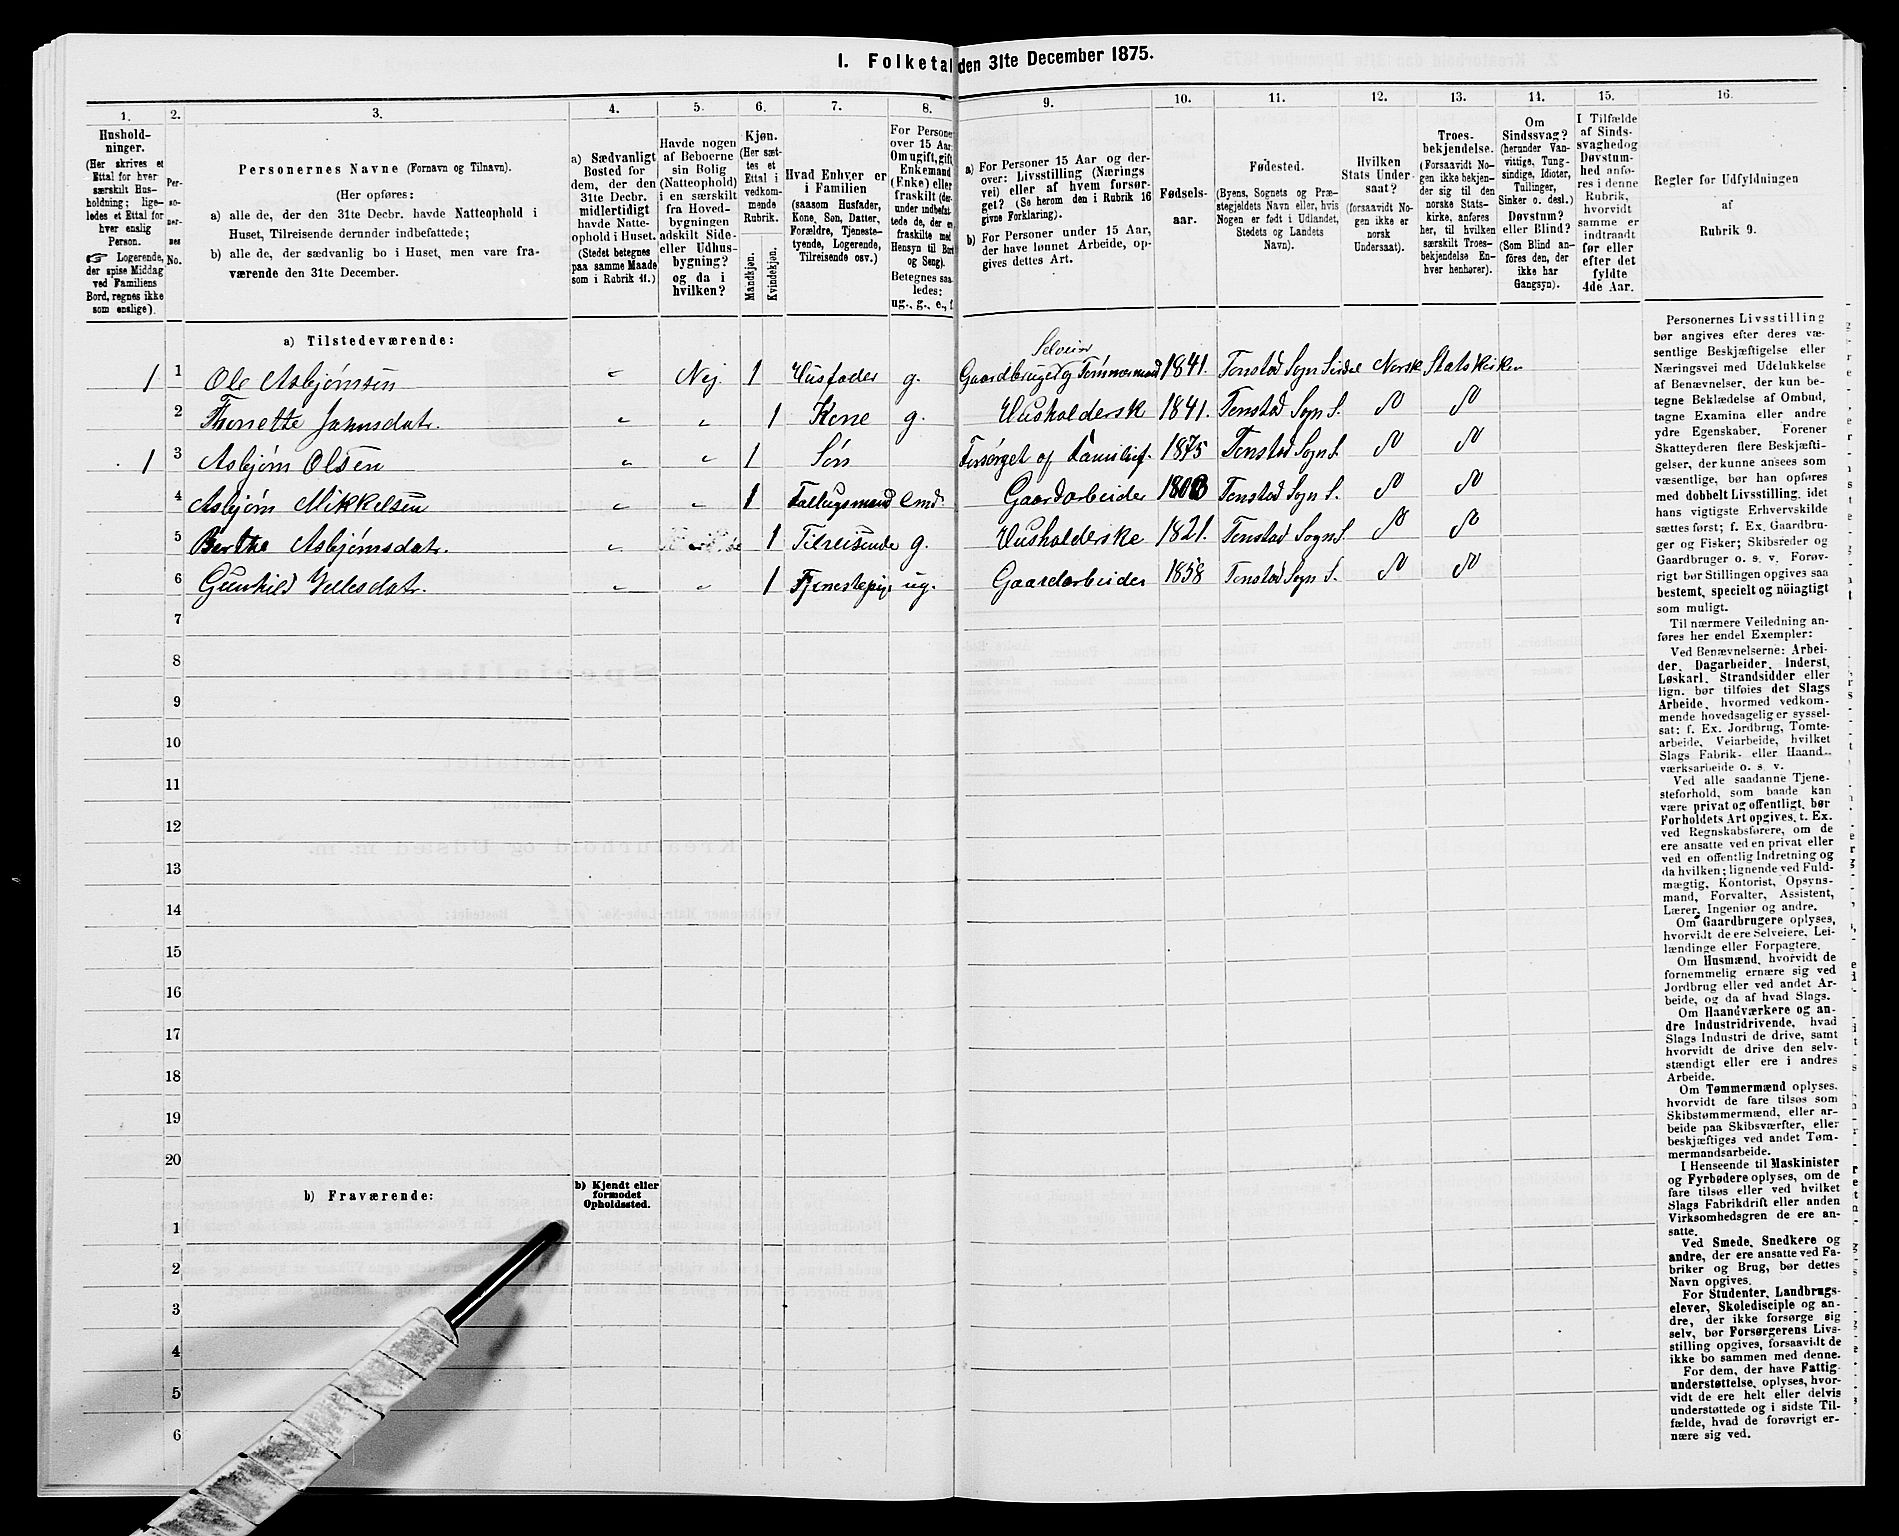 I. Folketal den 31te December 1875.
1. 2. 3. 4. 5. 6. 7. 8. 9. 10. 11. 12. 13. 14. 15. 16.
Hushold-
ninger.
(Her skrives et
Ettal for hver
særskilt Hus-
holdning; lige-
ledes et Ettal for
hver enslig
Person.
☞ Logerende,
der spise Middag
ved Familiens
Bord, regnes ikke
som enslige).
Per-
so-
ner-
nes
No.
Personernes Navne (Fornavn og Tilnavn).
(Her opføres:
a) alle de, der den 31te Decbr. havde Natteophold i
Huset, Tilreisende derunder indbefattede;
b) alle de, der sædvanlig bo i Huset, men vare fra-
værende den 31te December.
a) Sædvanligt
Bosted for
dem, der den
31te Decbr.
midlertidigt
havde Natte-
ophold i Huset.
(Stedet betegnes
paa samme Maade
som i Rubrik 11.)
Havde nogen
af Beboerne
sin Bolig
(Natteophold)
i en særskilt
fra Hoved-
bygningen
adskilt Side-
eller Udhus-
bygning?
og da i
hvilken?
Kjøn.
(Her sæt-
tes et
Ettal i
vedkom-
mende
Rubrik.
Mandkjøn.
Kvindekjøn.
Hvad Enhver er
i Familien
(saasom Husfader,
Kone, Søn, Datter,
Forældre, Tjeneste-
tyende, Logerende,
Tilreisende osv.)
For Persone
over 15 Aar:
Om ugift, gift,
Enkemand
(Enke) eller
fraskilt (der-
under indbefat-
tede de, der er
fraskilte med
Hensyn til Bord
og Seng).
Betegnes saa-
ledes:
ug., g., e., f.
a) For Personer 15 Aar og der-
over: Livsstilling (Nærings
vei) eller af hvem forsør-
get? (Se herom den i Rubrik 16
givne Forklaring).
b) For Personer under 15 Aar,
der have lønnet Arbeide, op-
gives dettes Art.
Fødsels-
aar.
Fødested.
(Byens, Sognets og Præ-
stegjeldets Navn eller, hvis
Nogen er født i Udlandet,
Stedets og Landets
Navn).
Hvilken
Stats Under-
saat?
(forsaavidt No-
gen ikke er
norsk
Undersaat).
Troes-
bekjendelse.
(Forsaavidt No-
gen ikke bekjen-
der sig til den
norske Stats-
kirke, anføres
her, til hvilken
særskilt Troes-
bekjendelse En-
hver henhører).
Om
Sindssvag?
(herunder Van-
vittige, Tung-
sindige, Idioter,
Tullinger,
Sinker o. desl.)
Døvstum?
eller Blind?
(Som Blind an-
føres den, der
ikke har
Gangsyn).
I Tilfælde
af Sinds-
svaghed og
Døvstum-
hed anfø-
res i denne
Rubrik,
hvorvidt
samme er
indtraadt
før eller
efter det
fyldte
4de Aar.
Regler for Udfyldningen
af
Rubrik 9.
a) Tilstedeværende:
Selveier
1 1 Ole Asbjørnsen " Nej 1 Husfader g. Gaardbruger og Tømmermand 1841. Tonstad Sogn Sirdal Norsk Statskirken
2 Thonette Jannsdatr. " " 1 Kone g. Husholderske 1841. Tonstad Sogn S.
1 3 Asbjørn Olsen " " 1 Søn Forsørget af Familief. 1875 Tonstad Sogn S.
4 Asbjørn Mikkelsen " " 1 emd. Gaardarbeider Tonstad Sogn S.
5 Berthe Asbjørnsdatr. " 1 Tilreisende g. Husholderske 1821. Tonstad Sogn S.
6 Gunhild " " 1 Tjenestepige ug. Gaardarbeider 1858 Tonstad Sogn S.
7
8
9
10
11
12
13
14
15
16
17
18
19
20
b) Fraværende:
b) Kjendt eller
formodet
Opholdssted.
1
2
3
4
5
6
Personernes Livsstilling
bør angives efter deres væ-
sentlige Beskjæftigelse eller
Næringsvei med Udelukkelse
af Benævnelser, der kun be-
tegne Beklædelse af Ombud,
tagne Examina eller andre
ydre Egenskaber. Forener
Skatteyderen flere Beskjæfti-
gelser, der kunne ansees som
væsentlige, bør han opføres
med dobbelt Livsstilling, idet
hans vigtigste Erhvervskilde
sættes først; f. Ex. Gaardbru-
ger og Fisker; Skibsreder og
Gaardbruger o. s. v. Forøv-
rigt bør Stillingen opgives saa
bestemt, specielt og nöiagtigt
som muligt.
Til nærmere Veiledning an-
føres her endel Exempler:
Ved Benævnelserne: Arbei-
der, Dagarbeider, Inderst,
Løskarl, Strandsidder eller
lign. bør tilføies det Slags
Arbeide, hvormed vedkom-
mende hovedsagelig er syssel-
sat; f. Ex. Jordbrug, Tomte-
arbeide, Veiarbeide, hvilket
Slags Fabrik- eller Haand-
værksarbeide o. s. v.
Ved alle saadanne Tjene-
steforhold, som baade kan
være privat og offentligt, bør
Forholdets Art opgives, t. Ex.
ved Regnskabsførere, om de
ere ansatte ved en privat eller
ved en offentlig Indretning og
da hvilken; lignende ved Fuld-
mægtig, Kontorist, Opsyns-
mand, Forvalter, Assistent,
Lærer, Ingeniør og andre.
Om Gaardbrugere oplyses,
hvorvidt de ere Selveiere, Lei-
lændinge eller Forpagtere.
Om Husmænd, hvorvidt de
fornemmelig ernære sig ved
Jordbrug eller ved andet Ar-
beide, og da af hvad Slags.
Om Haandværkere og an-
dre Industridrivende, hvad
Slags Industri de drive, samt
hvorvidt de drive den selv-
stændigt eller ere i andres
Arbeide.
Om Tømmermænd oplyses,
hvorvidt de fare tilsøs som
Skibstømmermænd, eller ar-
beide paa Skibsværfter, eller
beskjæftiges ved andet Tøm-
mermandsarbeide.
I Henseende til Maskinister
og Fyrbødere oplyses, om de
fare tilsøs eller ved hvilket
Slags Fabrikdrift eller anden
Virksomhedsgren de ere an-
satte.
Ved Smede, Snedkere og
andre, der ere ansatte ved Fa-
briker og Brug, bør dettes
Navn opgives.
For Studenter, Landbrugs-
elever, Skoledisciple og an-
dre, der ikke forsørge sig
selv, bør Forsørgerens Livs-
stilling opgives, forsaavidt de
ikke bo sammen med denne.
For dem, der have Fattig-
understøttelse, oplyses, hvor-
vidt de ere helt eller delvis
understøttede og i sidste Til-
fælde, hvad de forøvrigt er-
nære sig ved.